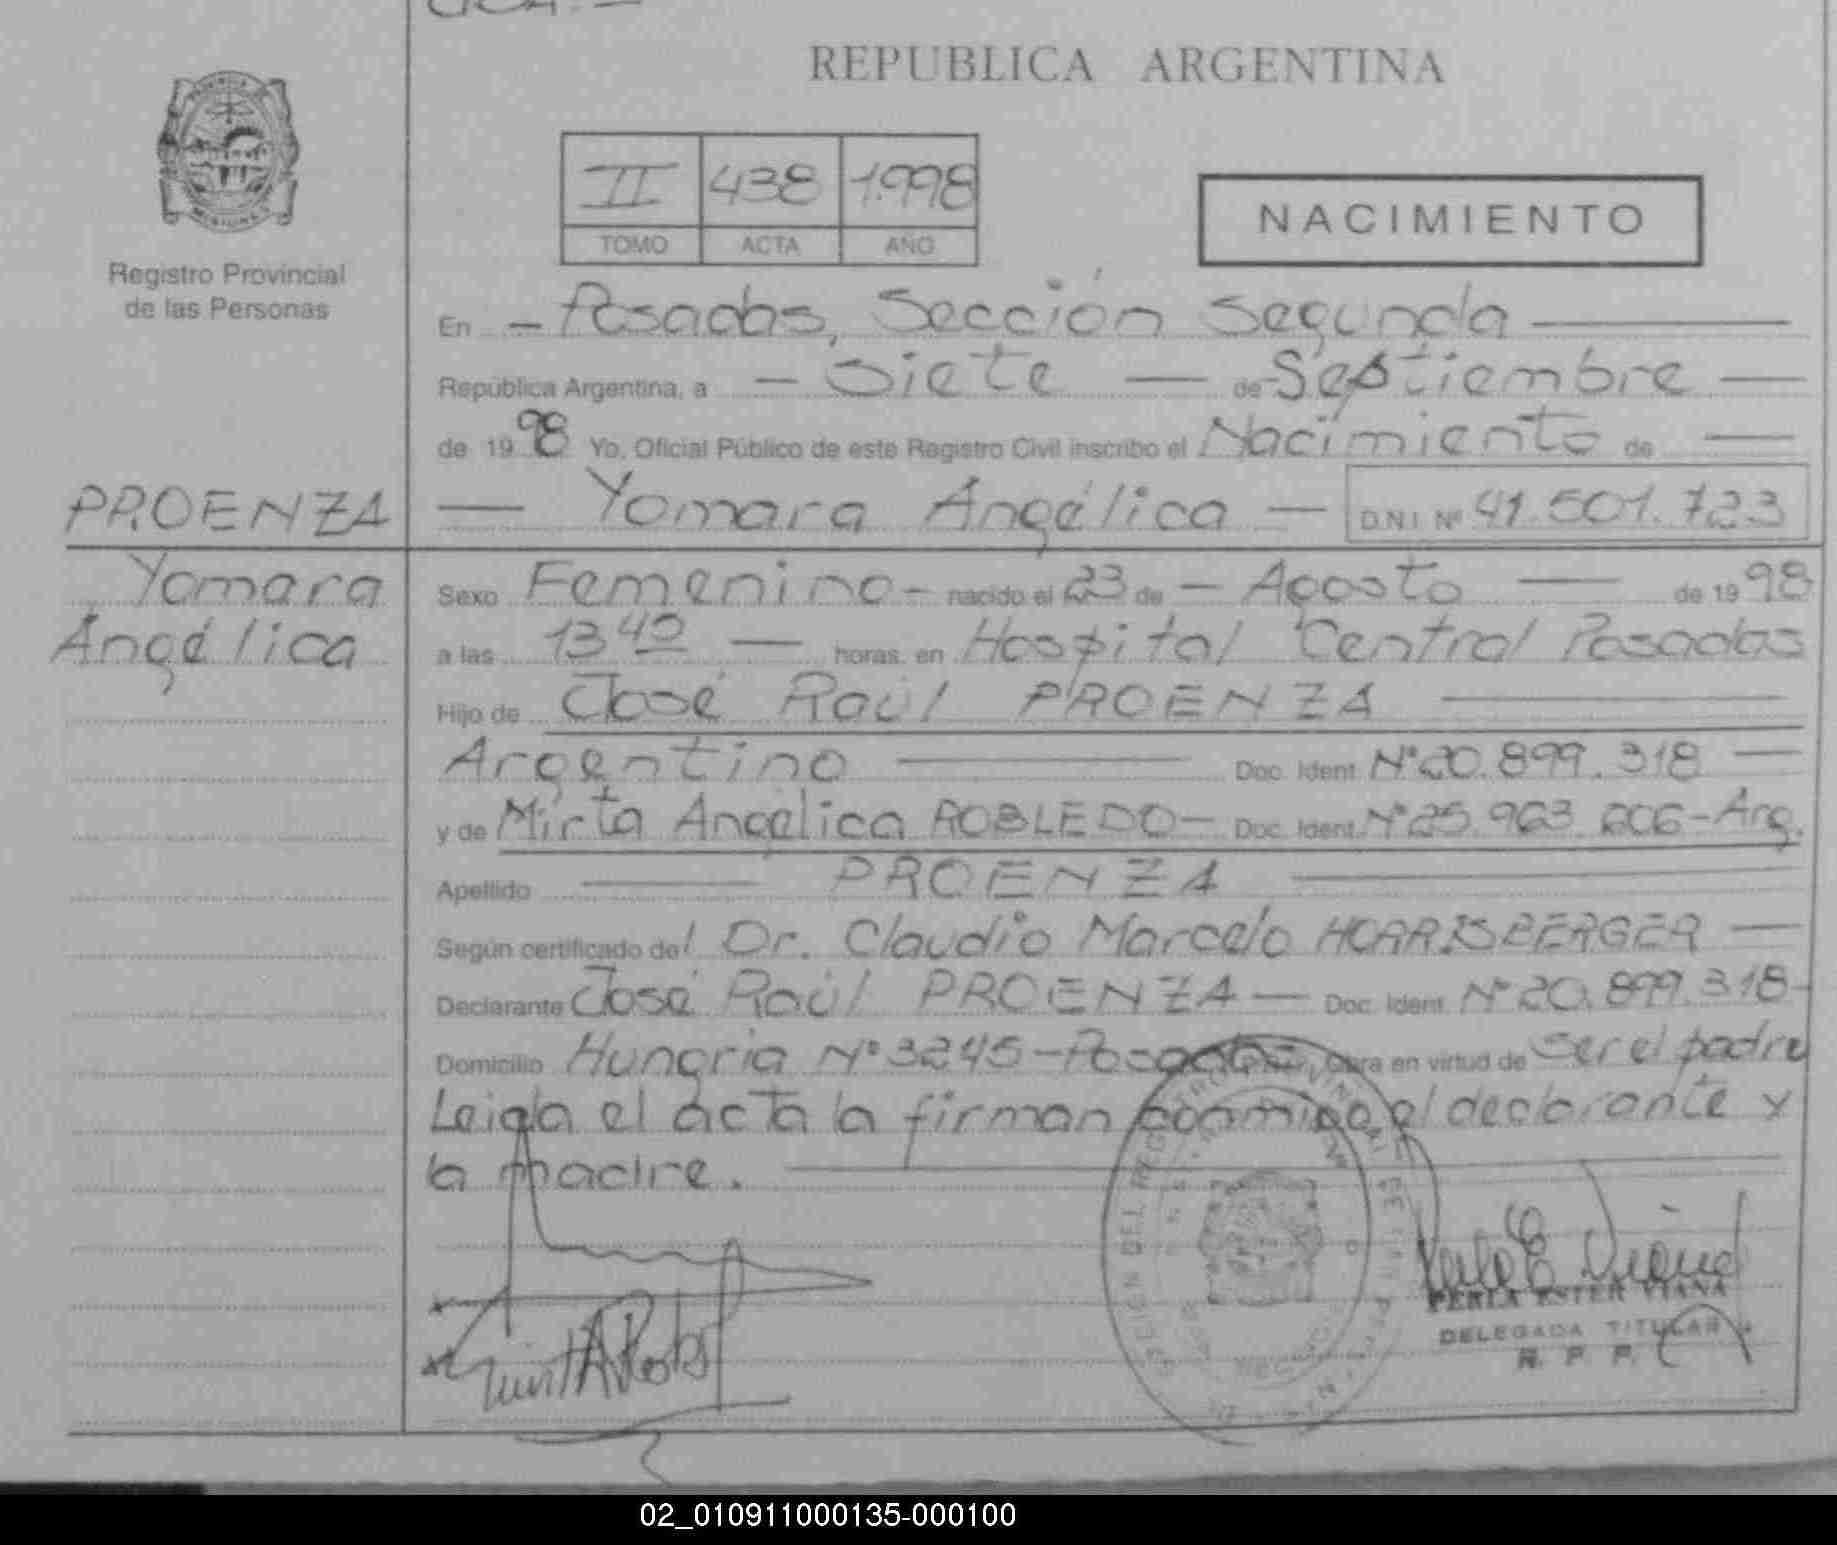 REPUBLICA ARGENTINA
PROVINCIA
MISIONES
Registro Provincial
de las Personas
II 438 1.998
TOMO ACTA AÑO
NACIMIENTO
En - Posadas, Sección Segunda
República Argentina, a - Siete - de Septiembre -
de 1998 Yo, Oficial Público de este Registro Civil inscribo el Nacimiento de -
PROENZA
- Yomara Angélica - D.N.I. Nº 41.501.723
Yomara
Angélica
Sexo Femenino - nacido el 23 de - Agosto - de 1998
a las 13 40 - horas. en Hospital Central Posadas
Hijo de José Raúl PROENZA
Argentino - Doc. Ident. Nº 20.899.318 -
y de Mirta Angélica ROBLEDO - Doc. Ident. Nº 25.963.606 - Arg.
Apellido - PROENZA -
Según certificado del Dr. Claudio Marcelo HORRISBERGER -
Declarante José Raúl PROENZA - Doc. Ident. Nº 20.899.318-
Domicilio Hungría Nº 3245 - Posadas Obra en virtud de ser el padre
Leida el acta la firman conmigo el declarante y
la madre.
PERLA ESTER VIANA
DELEGADA TITULAR
R. P. P.
02_010911000135-000100